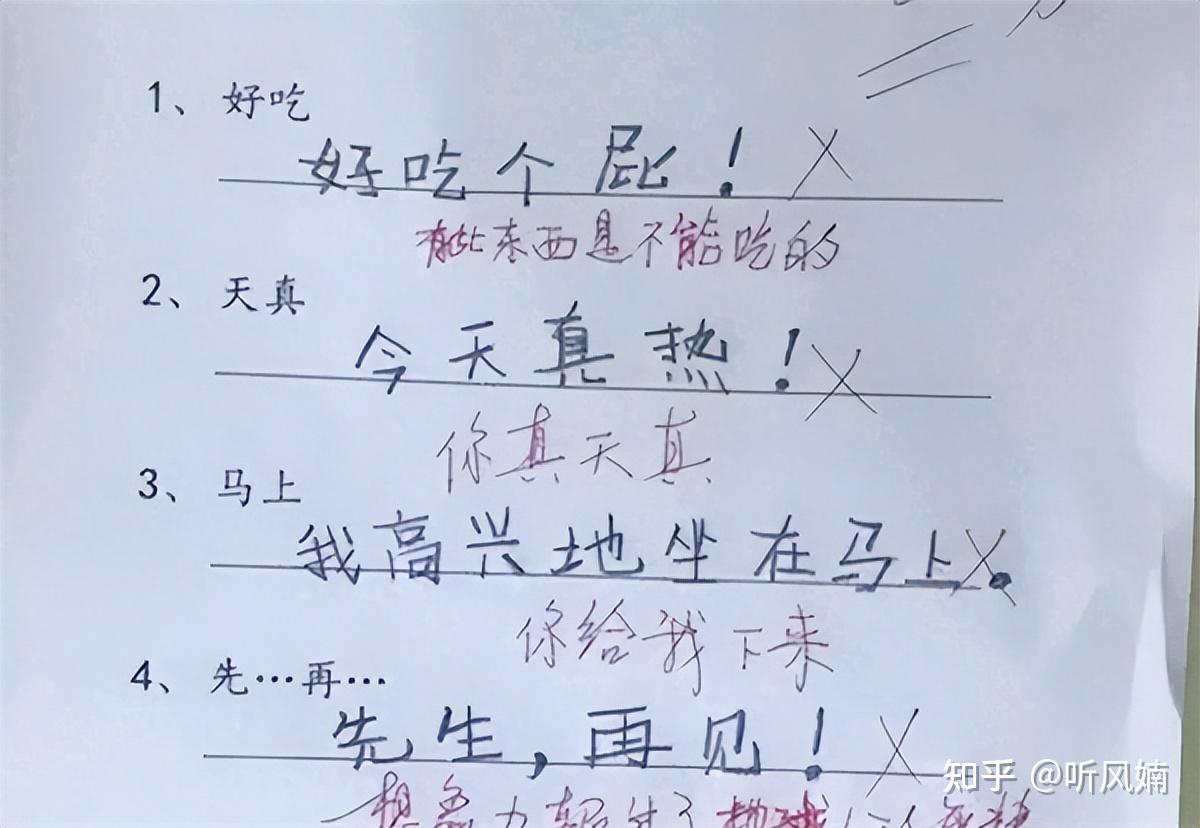 1、好吃
好吃个屁！
有些东西是不能吃的
2、天真
今天真热！
你真天真
3、马上
我高兴地坐在马上。
你给我下来
4、先…再…
先生，再见！
知乎 @听风婻
想象力超过了地球人